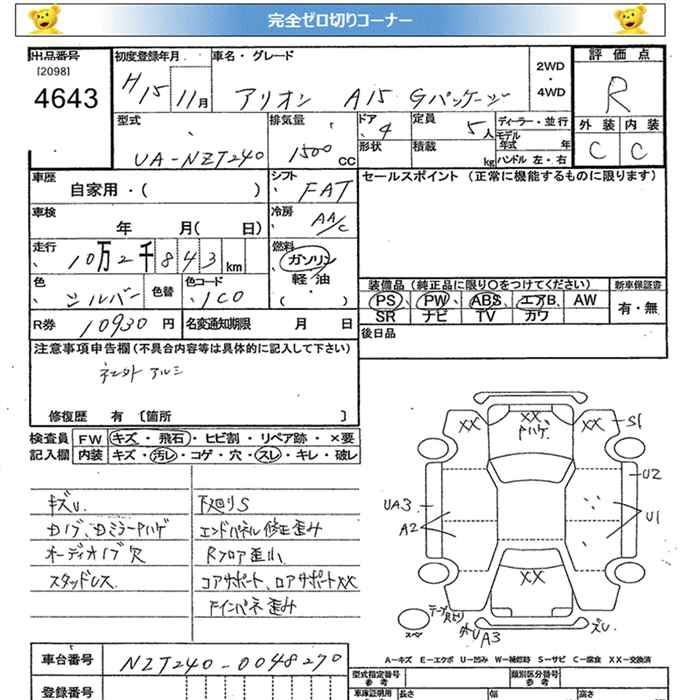 完全ゼロ切りコーナー
出品番号 初度登録年月 車名・グレード 2WD・4WD 評価点
[2098]
4643 H15 11月 アリオン A15 Gパッケージ R
型式 排気量 ドア 定員 ディーラー・並行 外装 内装
UA-NZT240 1500CC 4 5人 モデル年式 年 C C
形状 積載 kg ハンドル 左・右
車歴 シフト セールスポイント (正常に機能するものに限ります)
自家用・( ) FAT
車検 冷房
年 月( 日) AA/C
走行 燃料
10万2千843km ガソリン
軽油
( )
色 色替 色コード 装備品 (純正品に限り○をつけてください) 新車保証書
シルバー 1C0 PS PW ABS エアB AW 有・無
SR ナビ TV カワ
R券 10930円 名変通知期限 月 日 後日品
注意事項申告欄 (不具合内容等は具体的に記入して下さい)
アルミ
修復歴 有 〔箇所 〕
検査員 FW キズ・飛石・ヒビ割・リペア跡・×要
記入欄 内装 キズ・汚レ・コゲ・穴・スレ・キレ・破レ
キズU 下廻りS
エンドパネル修正歪み
オーディオノブ欠 Rフロア歪み
スタッドレス コアサポート、ロアサポートXX
歪み
XX XX ハゲ XX S1
U2
UA3
A2 U1
XX
スペ UA3 ズU
A-キズ E-エクボ U-凹み W-補修跡 S-サビ C-腐食 XX-交換済
車台番号 NZT240-0048270 型式指定番号 参考 類別区分番号 参考
登録番号 車庫証明用 長さ 幅 高さ